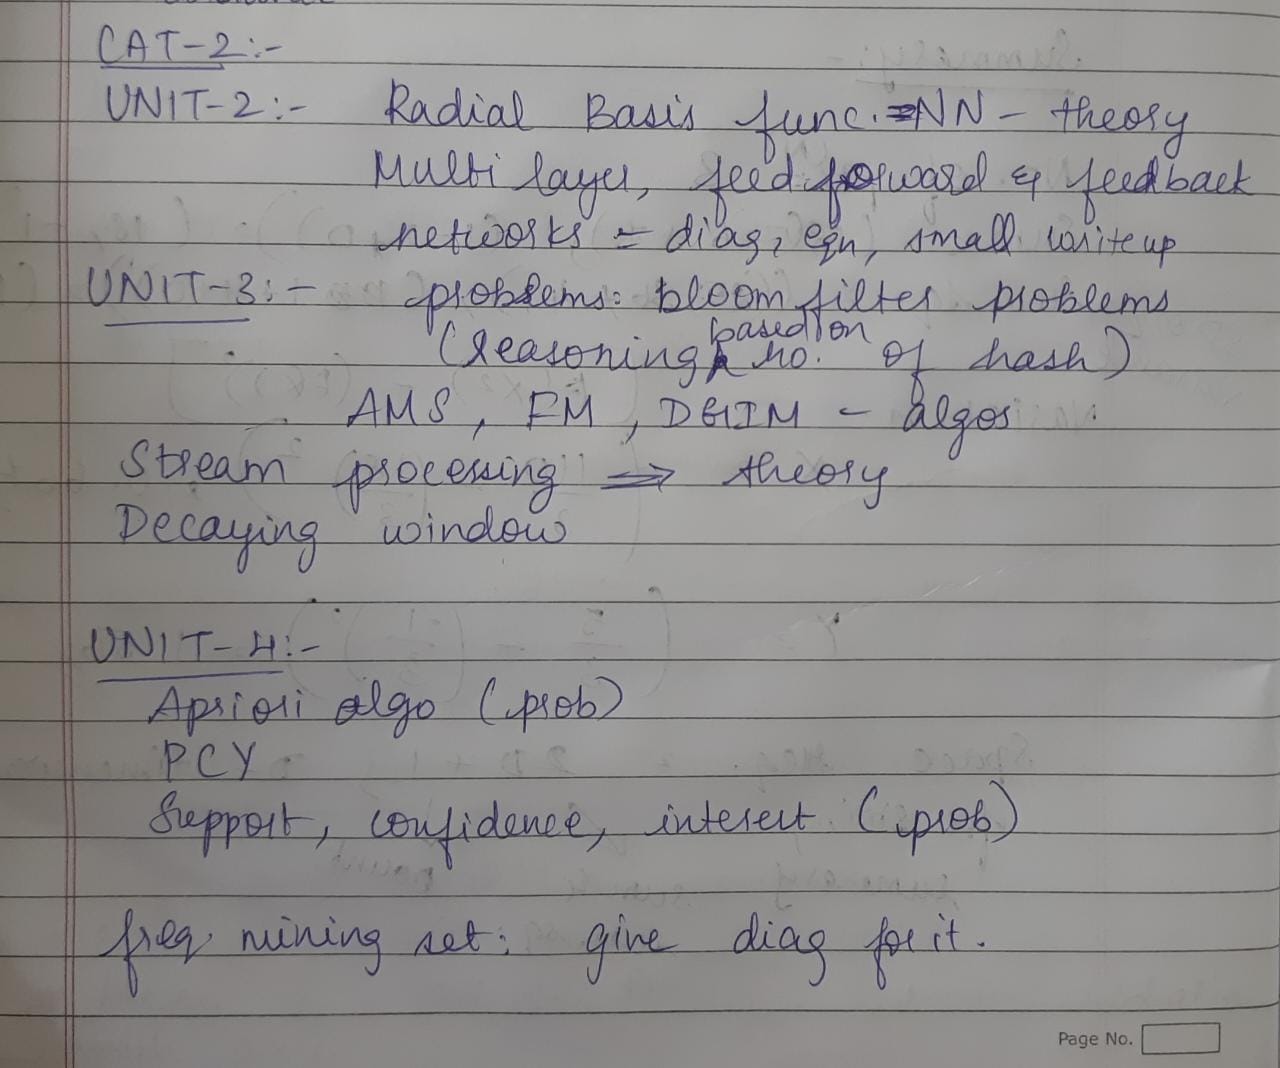 CAT-2:-
UNIT-2:- Radial Basis func. NN - theory
Multi layer, feed forward & feedback
networks = diag, eqn, small writeup
UNIT-3:- problems: bloom filter problems
(reasoning based on no. of hash)
AMS, FM, DGIM - algos
Stream processing ⇒ theory
Decaying window
UNIT-4:-
Apriori algo (prob)
PCY
Support, confidence, interest (prob)
freq mining set: give diag for it.
Page No.